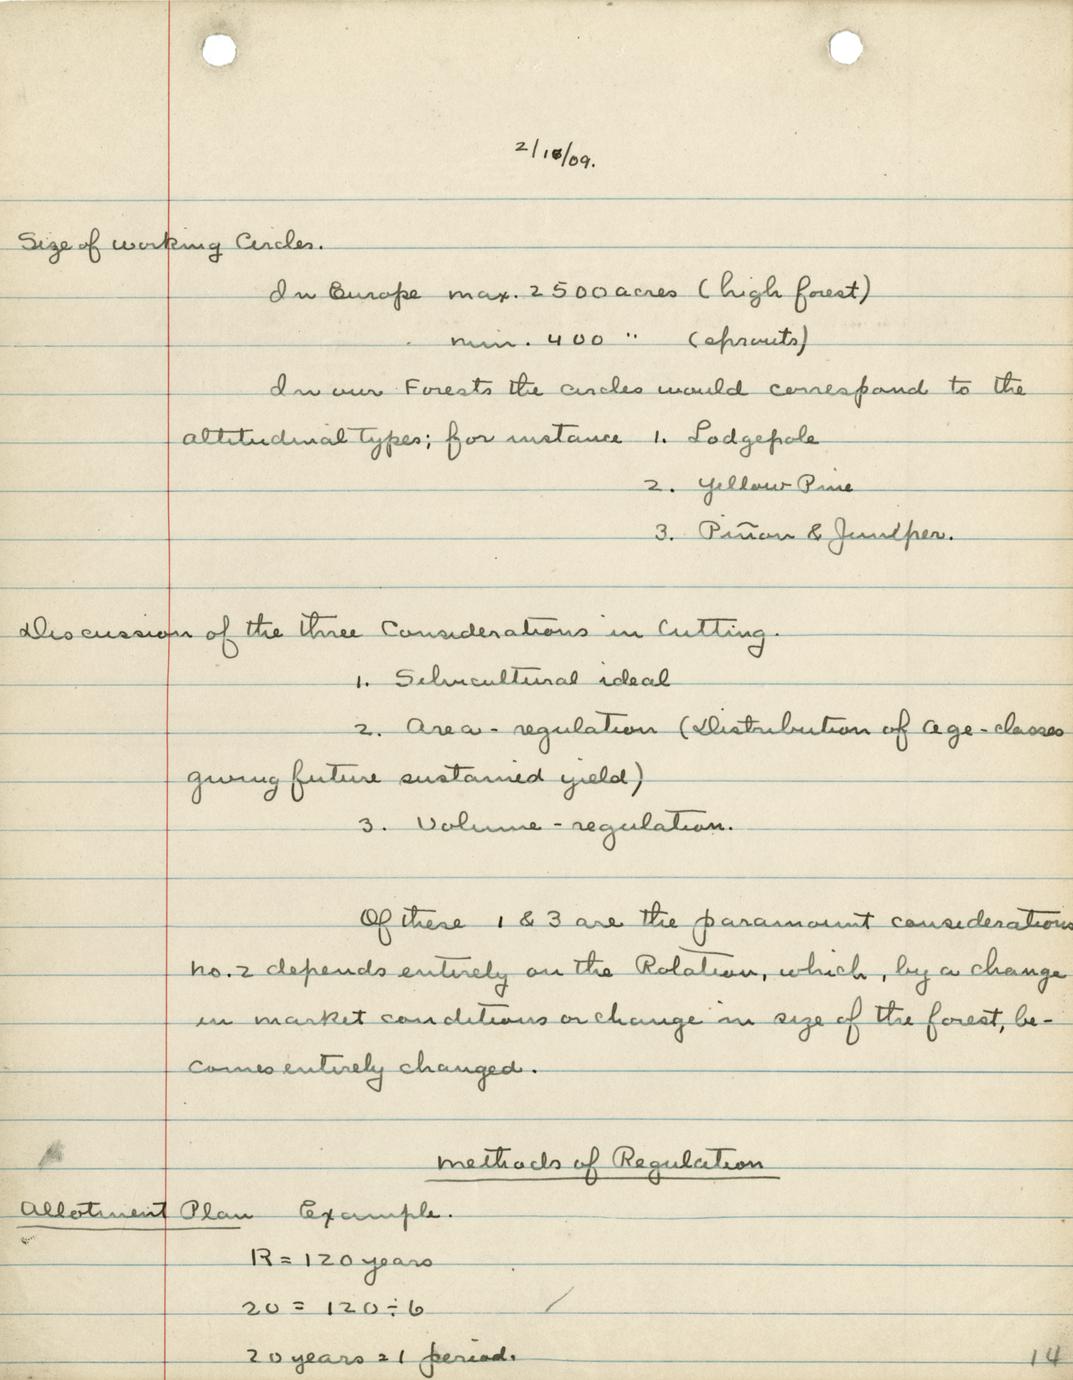 2/18/09.
Size of working Circles.
In Europe max. 2500 acres (high forest)
min. 400 " (sprouts)
In our Forests the circles would correspond to the
altitudinal types; for instance 1. Lodgepole
2. Yellow Pine
3. Piñon & Juniper.
Discussion of the three Considerations in Cutting.
1. Silvicultural ideal
2. Area-regulation (Distribution of age-classes
giving future sustained yield)
3. Volume-regulation.
Of these 1 & 3 are the paramount considerations
no. 2 depends entirely on the Rotation, which, by a change
in market conditions or change in size of the forest, be-
comes entirely changed.
Methods of Regulation
Allotment Plan Example.
R = 120 years
20 = 120 ÷ 6
20 years = 1 period.
14